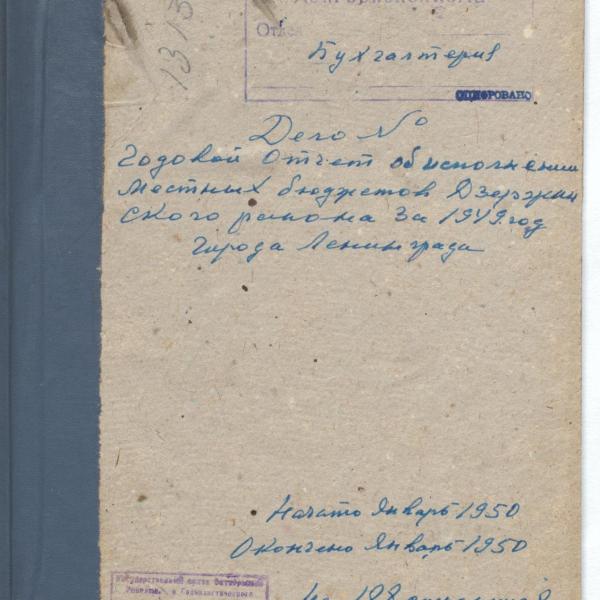 1313
Отдел
Бухгалтерия
ОЦИФРОВАНО
Дело №
Годовой Отчет об исполнении
местных бюджетов Дзержин
ского района за 1949 год
города Ленинграда
Начато Январь 1950
Окончено Январь 1950
На 198
Государственный архив Октябрьской